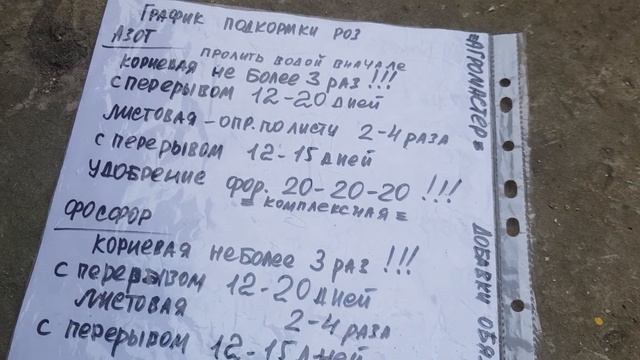 ГРАФИК ПОДКОРМКИ РОЗ
АЗОТ
ПРОЛИТЬ ВОДОЙ ВНАЧАЛЕ
КОРНЕВАЯ НЕ БОЛЕЕ 3 РАЗ !!!
С ПЕРЕРЫВОМ 12-20 ДНЕЙ
ЛИСТОВАЯ - ОПР. ПО ЛИСТУ 2-4 РАЗА
С ПЕРЕРЫВОМ 12-15 ДНЕЙ
УДОБРЕНИЕ ФОР. 20-20-20 !!!
= КОМПЛЕКСНАЯ =
ФОСФОР
КОРНЕВАЯ НЕ БОЛЕЕ 3 РАЗ !!!
С ПЕРЕРЫВОМ 12-20 ДНЕЙ
ЛИСТОВАЯ 2-4 РАЗА
С ПЕРЕРЫВОМ 12-15 ДНЕЙ
"АГРОМАСТЕР"
ДОБАВКИ